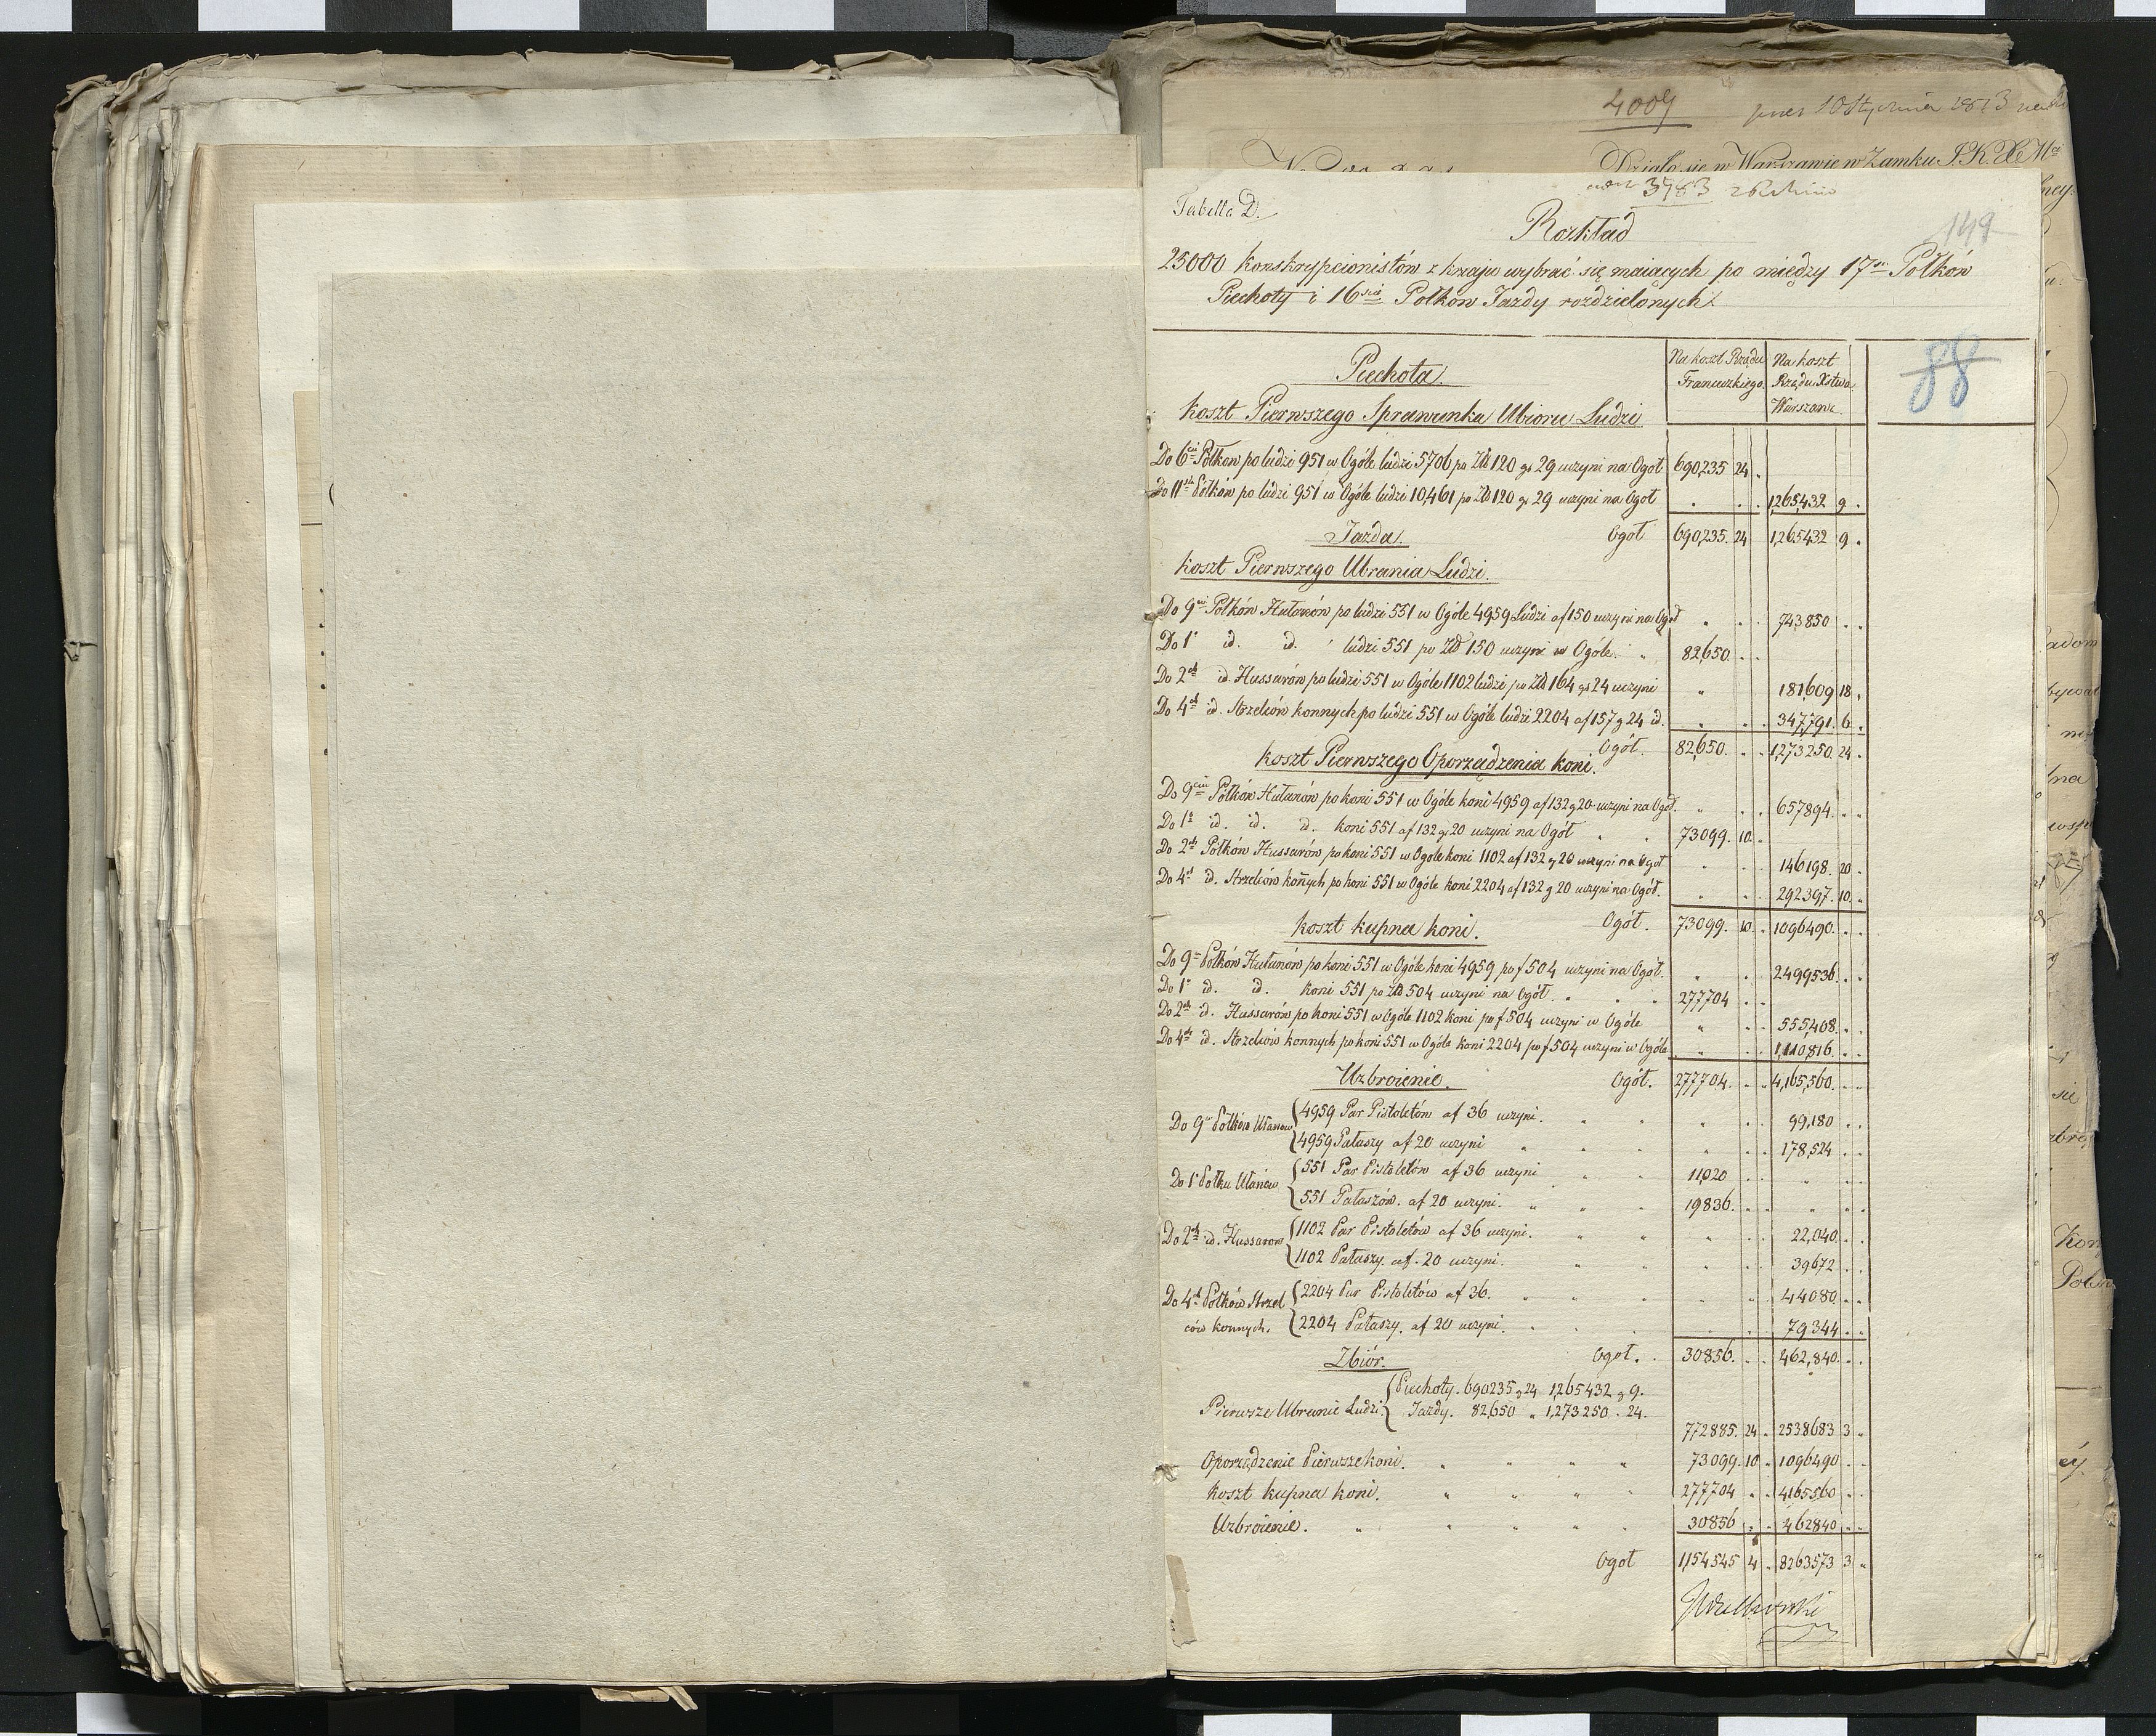 4009 10 Stycznia 1813
Działo się w Warszawie w Zamku J. K. X. Mci
3783
Tabella D.
149
Rozkład
25000 Konskrypcionistów z kraju wybrać się maiących po między 17m Połków
Piechoty i 16scie Połków Jazdy rozdzielonych.
Na koszt Rządu Francuzkiego
Na koszt Rządu Xstwa Warszawe.
88
Piechota.
Koszt Pierwszego Sprawunku Ubioru Ludzi
Do 6ciu Połków po ludzi 951 w Ogóle ludzi 5706 po Złł 120 gr 29 uczyni na Ogół 690,235 24 .
Do 11stu Połków po ludzi 951 w Ogóle ludzi 10,461 po Złł 120 gr 29 uczyni na Ogół . . . 1,265,432 9 .
Jazda. Ogół 690,235. 24 1,265432 9 .
Koszt Pierwszego Ubrania Ludzi.
Do 9ciu Połków Hułanów po ludzi 551 w Ogóle 4959 Ludzi af 150 uczyni na Ogół " . . 743,850 . .
Do 1o id. id. ludzi 551 po Złł 150 uczyni w Ogóle. " 82,650. . .
Do 2ch id. Hussarów po ludzi 551 w Ogóle 1102 ludzi po Złł 164 gr 24 uczyni " 181,609 18 .
Do 4ch id. Strzelców konnych po ludzi 551 w Ogóle ludzi 2204 af 157 g 24 id. " . . 347,791. 6 .
Ogół. 82,650. . . 1,273,250. 24 .
Koszt Pierwszego Oporządzenia koni.
Do 9ciu Połków Hułanów po koni 551 w Ogóle koni 4959 af 132 g 20 uczyni na Ogół. " . . 657,894. . .
Do 1o id. id. id. koni 551 af 132 g 20 uczyni na Ogół " " 73099. 10 .
Do 2ch Połków Hussarów po koni 551 w Ogóle koni 1102 af 132 g 20 uczyni na Ogół " . . 146198. 20 .
Do 4ch id. Strzelców konnych po koni 551 w Ogóle koni 2204 af 132 g 20 uczyni na Ogół. " . . 292397. 10. .
Koszt kupna koni. Ogół. 73099. 10 . 1096490. . .
Do 9u Połków Hułanów po koni 551 w Ogóle koni 4959 po f 504 uczyni na Ogół. " . . 2499536. . .
Do 1o id. id. koni 551 po Złł 504 uczyni na Ogół. " . . 277704 . .
Do 2ch id. Hussarów po koni 551 w Ogóle 1102 koni po f 504 uczyni w Ogóle " . . 555,408. . .
Do 4ch id. Strzelców konnych po koni 551 w Ogóle koni 2204 po f 504 uczyni w Ogóle " . . 1,110,816. . .
Uzbroienie. Ogół. 277704. . . 4,165,560. . .
Do 9u Połków Ułanów { 4959 Par Pistoletów af 36 uczyni. " " " " . . 99,180 . .
{ 4959 Pałaszy af 20 uczyni " " " " . . 178,524 . .
Do 1o Połku Ułanów { 551 Par Pistoletów af 36 uczyni " " 11,020 . . " . .
{ 551 Pałaszów. af 20 uczyni. " " " 19836. . . " . .
Do 2ch id. Hussarów { 1102 Par Pistoletów af 36 uczyni. " " " . . 22,040. . .
{ 1102 Pałaszy. af. 20 uczyni. " " " . . 39672 . .
Do 4ch Połków Strzel { 2204 Par Pistoletów af 36. " " " " . . 44080. . .
ców konnych. { 2204 Pałaszy. af 20 uczyni. . . . . . . 79344 . .
Zbiór. Ogół. . 30856. . . 462,840. . .
{ Piechoty. 690235 g 24 1,265432 g 9.
Pierwsze Ubranie Ludzi. { Jazdy. 82,650 " 1,273250 . 24.
772885. 24 . 2538683 3 .
Oporządzenie Pierwsze koni. " " " " 73099. 10 . 1096490 . .
Koszt kupna koni. " " " " 277704 . . 4165560 . .
Uzbroienie. " " " " " 30856 . . 462840 . .
Ogół 1,154545 4 . 8263573 3 .